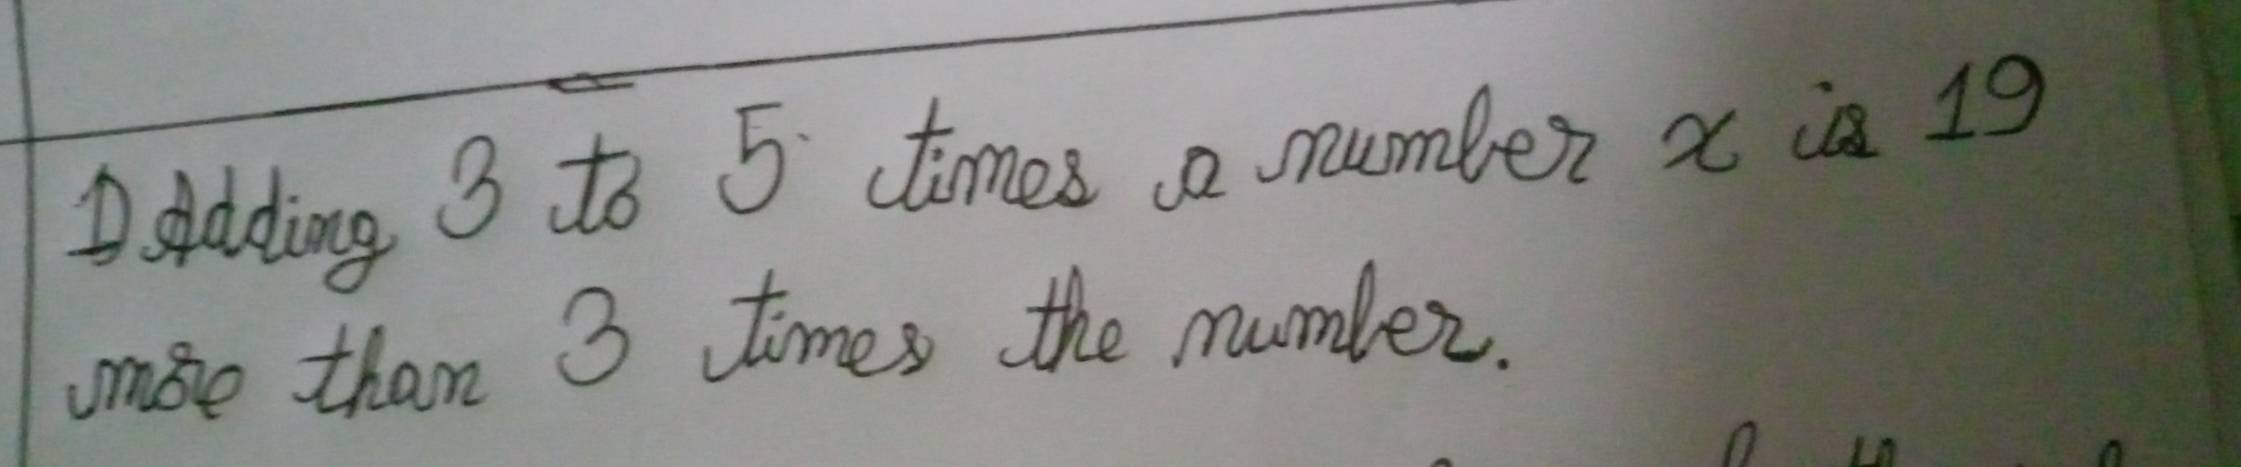 1) Adding 3 to 5 times a number x is 19
more than 3 times the number.